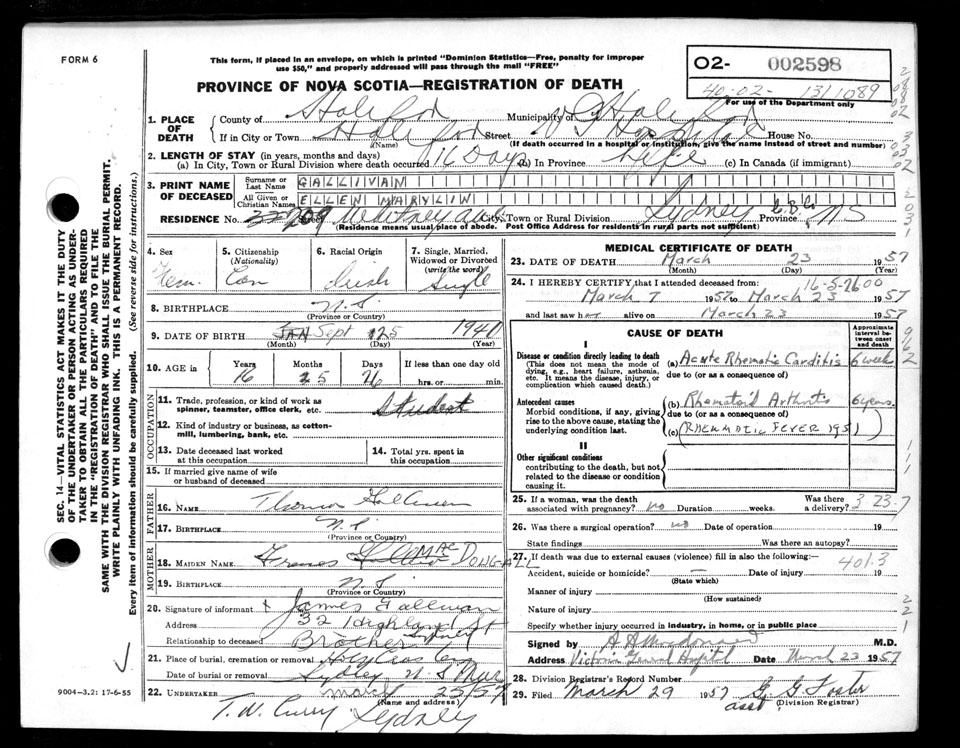 FORM 6
This form, if placed in an envelope, on which is printed "Dominion Statistics—Free, penalty for improper
use $50," and properly addressed will pass through the mail "FREE"
O2- 002598
40-02- 131 1089
For use of the Department only
PROVINCE OF NOVA SCOTIA—REGISTRATION OF DEATH
1. PLACE OF DEATH
County of Halifax Municipality of
If in City or Town Halifax Street V G Hospital House No.
(Name) (If death occurred in a hospital or institution, give the name instead of street and number)
2. LENGTH OF STAY (in years, months and days)
(a) In City, Town or Rural Division where death occurred 16 Days (b) In Province Life (c) In Canada (if immigrant)
3. PRINT NAME OF DECEASED
Surname or Last Name GALLIVAN
All Given or Christian Names ELLEN MARYLIN
RESIDENCE No. Street City, Town or Rural Division Sydney C.B.Co. Province NS
(Residence means usual place of abode. Post Office Address for residents in rural parts not sufficient)
4. Sex Fem.
5. Citizenship (Nationality) Can
6. Racial Origin Irish
7. Single, Married, Widowed or Divorced (write the word) Single
8. BIRTHPLACE N.S.
(Province or Country)
9. DATE OF BIRTH Sept 25 1940
(Month) (Day) (Year)
10. AGE in Years 16 Months 5 Days 26 If less than one day old
hrs. or min.
OCCUPATION
11. Trade, profession, or kind of work as
spinner, teamster, office clerk, etc. Student
12. Kind of industry or business, as cotton-
mill, lumbering, bank, etc.
13. Date deceased last worked
at this occupation
14. Total yrs. spent in
this occupation
15. If married give name of wife
or husband of deceased
FATHER
16. NAME Thomas Gallivan
17. BIRTHPLACE N.S.
(Province or Country)
MOTHER
18. MAIDEN NAME Frances MAC DOUGALL
19. BIRTHPLACE N.S.
(Province or Country)
20. Signature of informant x James Gallivan
Address 32 Highland St Sydney
Relationship to deceased Brother
21. Place of burial, cremation or removal Holy Cross Cem
Date of burial or removal Sydney N S Mar
March 25/57
22. UNDERTAKER
(Name and address)
T. W. Curry Sydney
9004-3.2: 17-6-55
SEC. 14—VITAL STATISTICS ACT MAKES IT THE DUTY
OF THE UNDERTAKER OR PERSON ACTING AS UNDER-
TAKER TO OBTAIN ALL THE PARTICULARS REQUIRED
IN THE "REGISTRATION OF DEATH" AND TO FILE THE
SAME WITH THE DIVISION REGISTRAR WHO SHALL ISSUE THE BURIAL PERMIT.
WRITE PLAINLY WITH UNFADING INK. THIS IS A PERMANENT RECORD.
Every item of information should be carefully supplied. (See reverse side for instructions.)
MEDICAL CERTIFICATE OF DEATH
23. DATE OF DEATH March 23 1957
(Month) (Day) (Year)
16-5-2600
24. I HEREBY CERTIFY that I attended deceased from:
March 7 1957 to March 23 1957
and last saw her alive on March 23 1957
CAUSE OF DEATH
Approximate interval between onset and death
I
Disease or condition directly leading to death
(This does not mean the mode of
dying, e.g., heart failure, asthenia,
etc. It means the disease, injury, or
complication which caused death.)
(a) Acute Rhematic Carditis 6 weeks
due to (or as a consequence of)
Antecedent causes
Morbid conditions, if any, giving
rise to the above cause, stating the
underlying condition last.
(b) Rhematoid Arthritis 6 years.
due to (or as a consequence of)
(c) (RHEUMATIC FEVER 1951)
II
Other significant conditions
contributing to the death, but not
related to the disease or condition
causing it.
25. If a woman, was the death
associated with pregnancy? no Duration weeks.
Was there
a delivery?
3 23-7
26. Was there a surgical operation? no Date of operation 19
State findings Was there an autopsy?
27. If death was due to external causes (violence) fill in also the following:—
401.3
Accident, suicide or homicide? — Date of injury 19
(State which)
Manner of injury
(How sustained)
Nature of injury
Specify whether injury occurred in industry, in home, or in public place
Signed by A A Macdonald M.D.
Address Victoria General Hospital Date March 23 1957
28. Division Registrar's Record Number
29. Filed March 29 1957 G. G. Foster
asst (Division Registrar)